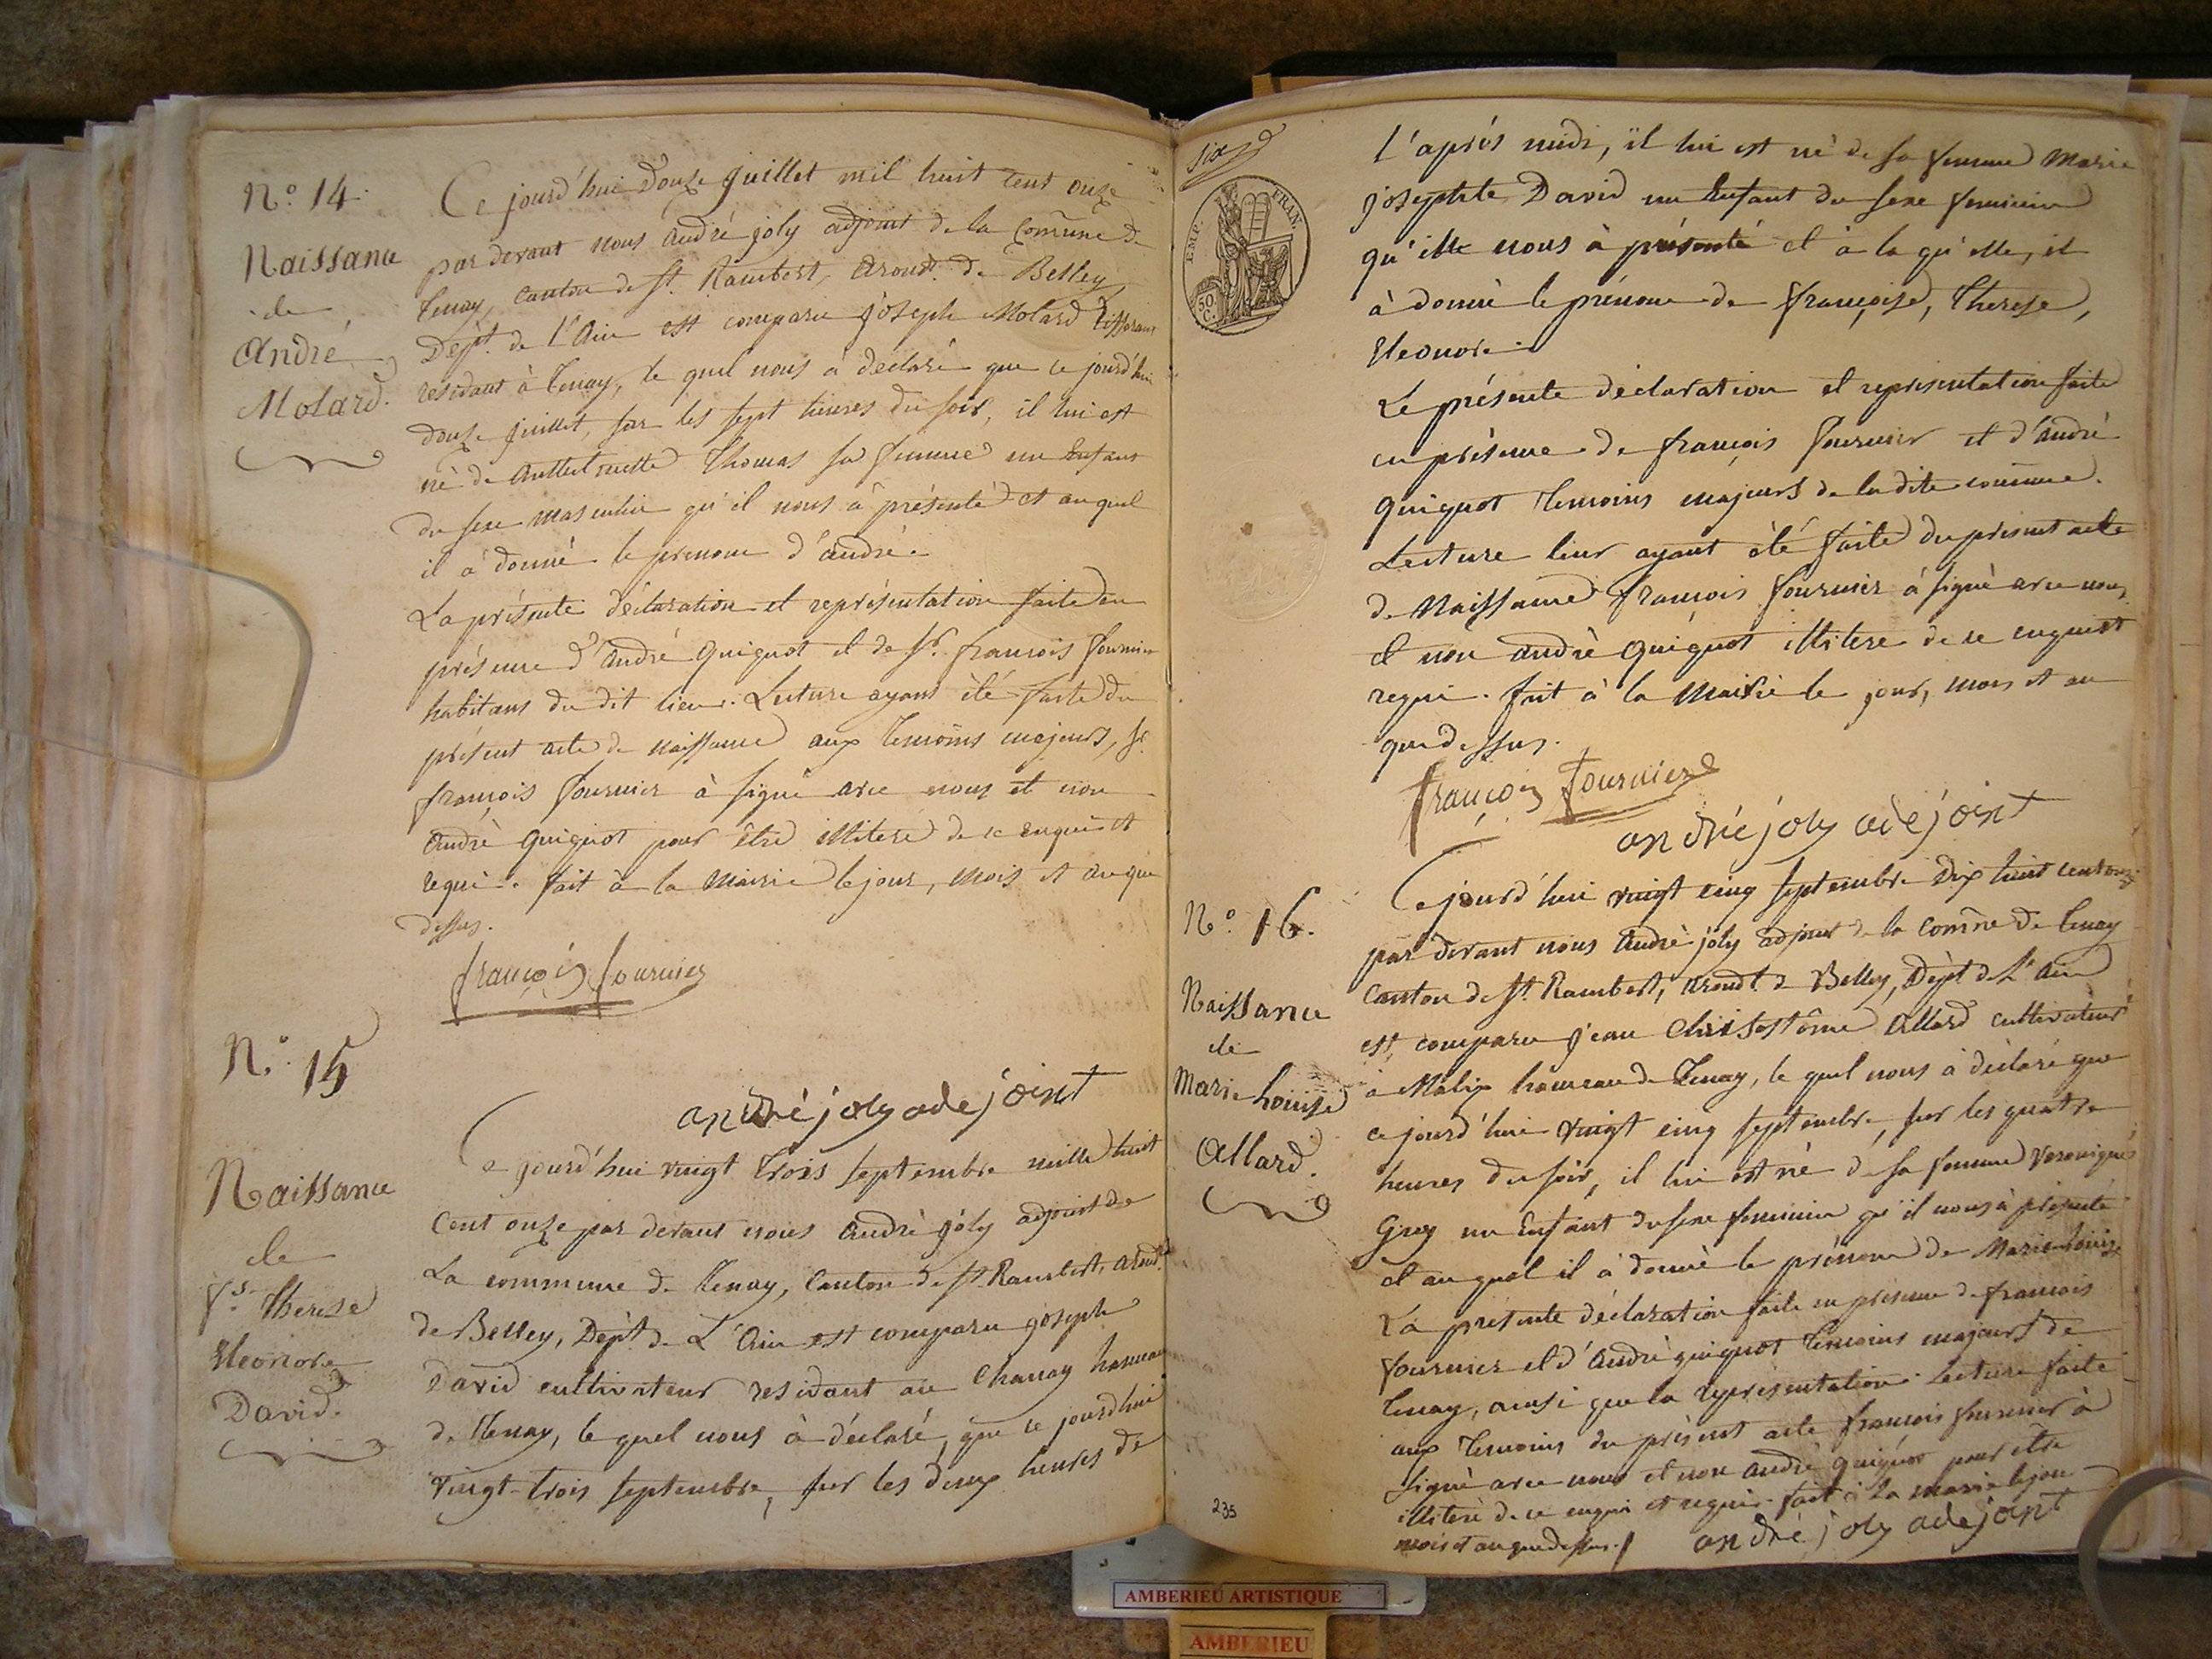 N.° 14.
Naissance
de
André
Molard.
Ce jourd'hui douze Juillet mil huit cent onze
par devant nous André joly adjoint de la Comune de
Tenay, canton de St. Rambert, Arondt. de Belley
Dept. de l'Ain est comparu joseph Molard Tisseran
residant à Tenay, le quel nous à déclaré que ce jourd'hui
douze Juillet, sur les sept heures du soir, il lui est
né de Thomas sa femme un Enfant
du sexe masculin qu'il nous à présenté et au quel
il à donné le prenom d'andré.
La présente déclaration et représentation faite en
présence d'André Quiquot et de Sr. francois fournier
habitans du dit lieu. Lecture ayant été faite du
présent acte de naissance aux Temoins majeurs, Sr.
francois fournier à signé avec nous et non
André Quiquot pour être illiteré de ce enquis et
requi. fait à la Mairie le jour, mois et an que
dessus.
françois fournier
andré joly adejoint
N.° 15
Naissance
de
fse. Therese
Eleonore
David.
Ce jourd'hui vingt trois septembre mille huit
cent onze par devant nous André joly adjoint de
La commune de Tenay, Canton de St. Rambert, Arondt.
de Belley, Dept. de L'Ain est comparu joseph
David cultivateur residant au Chanay hameau
de Tenay, le quel nous à déclaré, que ce jourd'hui
vingt-trois septembre, sur les deux heures de
six
EMP. FRAN.
50 C.
l'après midi, il lui est né de sa femme Marie
josephte David un Enfant du sexe feminin
qu'ille nous à présenté et à la qu'elle, il
à donné le prénom de françoise, Therese,
Eleonore.
Le présente déclaration et representation faite
en présence de francois fournier et d'andré
Quiquot Temoins majeurs de la dite comune.
Lecture leur ayant été faite du present acte
de Naissance francois fournier à signé avec nous
et non andré Quiquot illitere de ce enquis et
requi. fait à la Mairie le jour, mois et an
que dessus.
françois fournier
andré joly adejoint
N.° 16.
Naissance
de
Marie Louise
Allard.
Ce jourd'hui vingt cinq septembre dix huit cent onze
par devant nous André joly adjoint de la comune de Tenay
Canton de St. Rambert, Arondt. de Belley, Dept. de L'Ain
est comparu jean Chrisostôme Allard cultivateur
à Malix hameau de Tenay, le quel nous à déclaré que
ce jourd'hui vingt cinq septembre, sur les quatre
heures du soir, il lui est né de sa femme Veronique
Grey un Enfant du sexe feminin qu'il nous à présenté
et au quel il à donné le prénom de Marie Louise
La présente déclaration faite en présence de francois
fournier et d'André quiquot Temoins majeurs de
Tenay, ainsi que la représentation. Lecture faite
aux Temoins du présent acte francois fournier à
signé avec nous et non André quiquot pour etre
illiteré de ce enqui et requi. fait à la mairie le jour
mois et an que dessus./
andré joly adejoint
235
AMBERIEU ARTISTIQUE
AMBERIEU